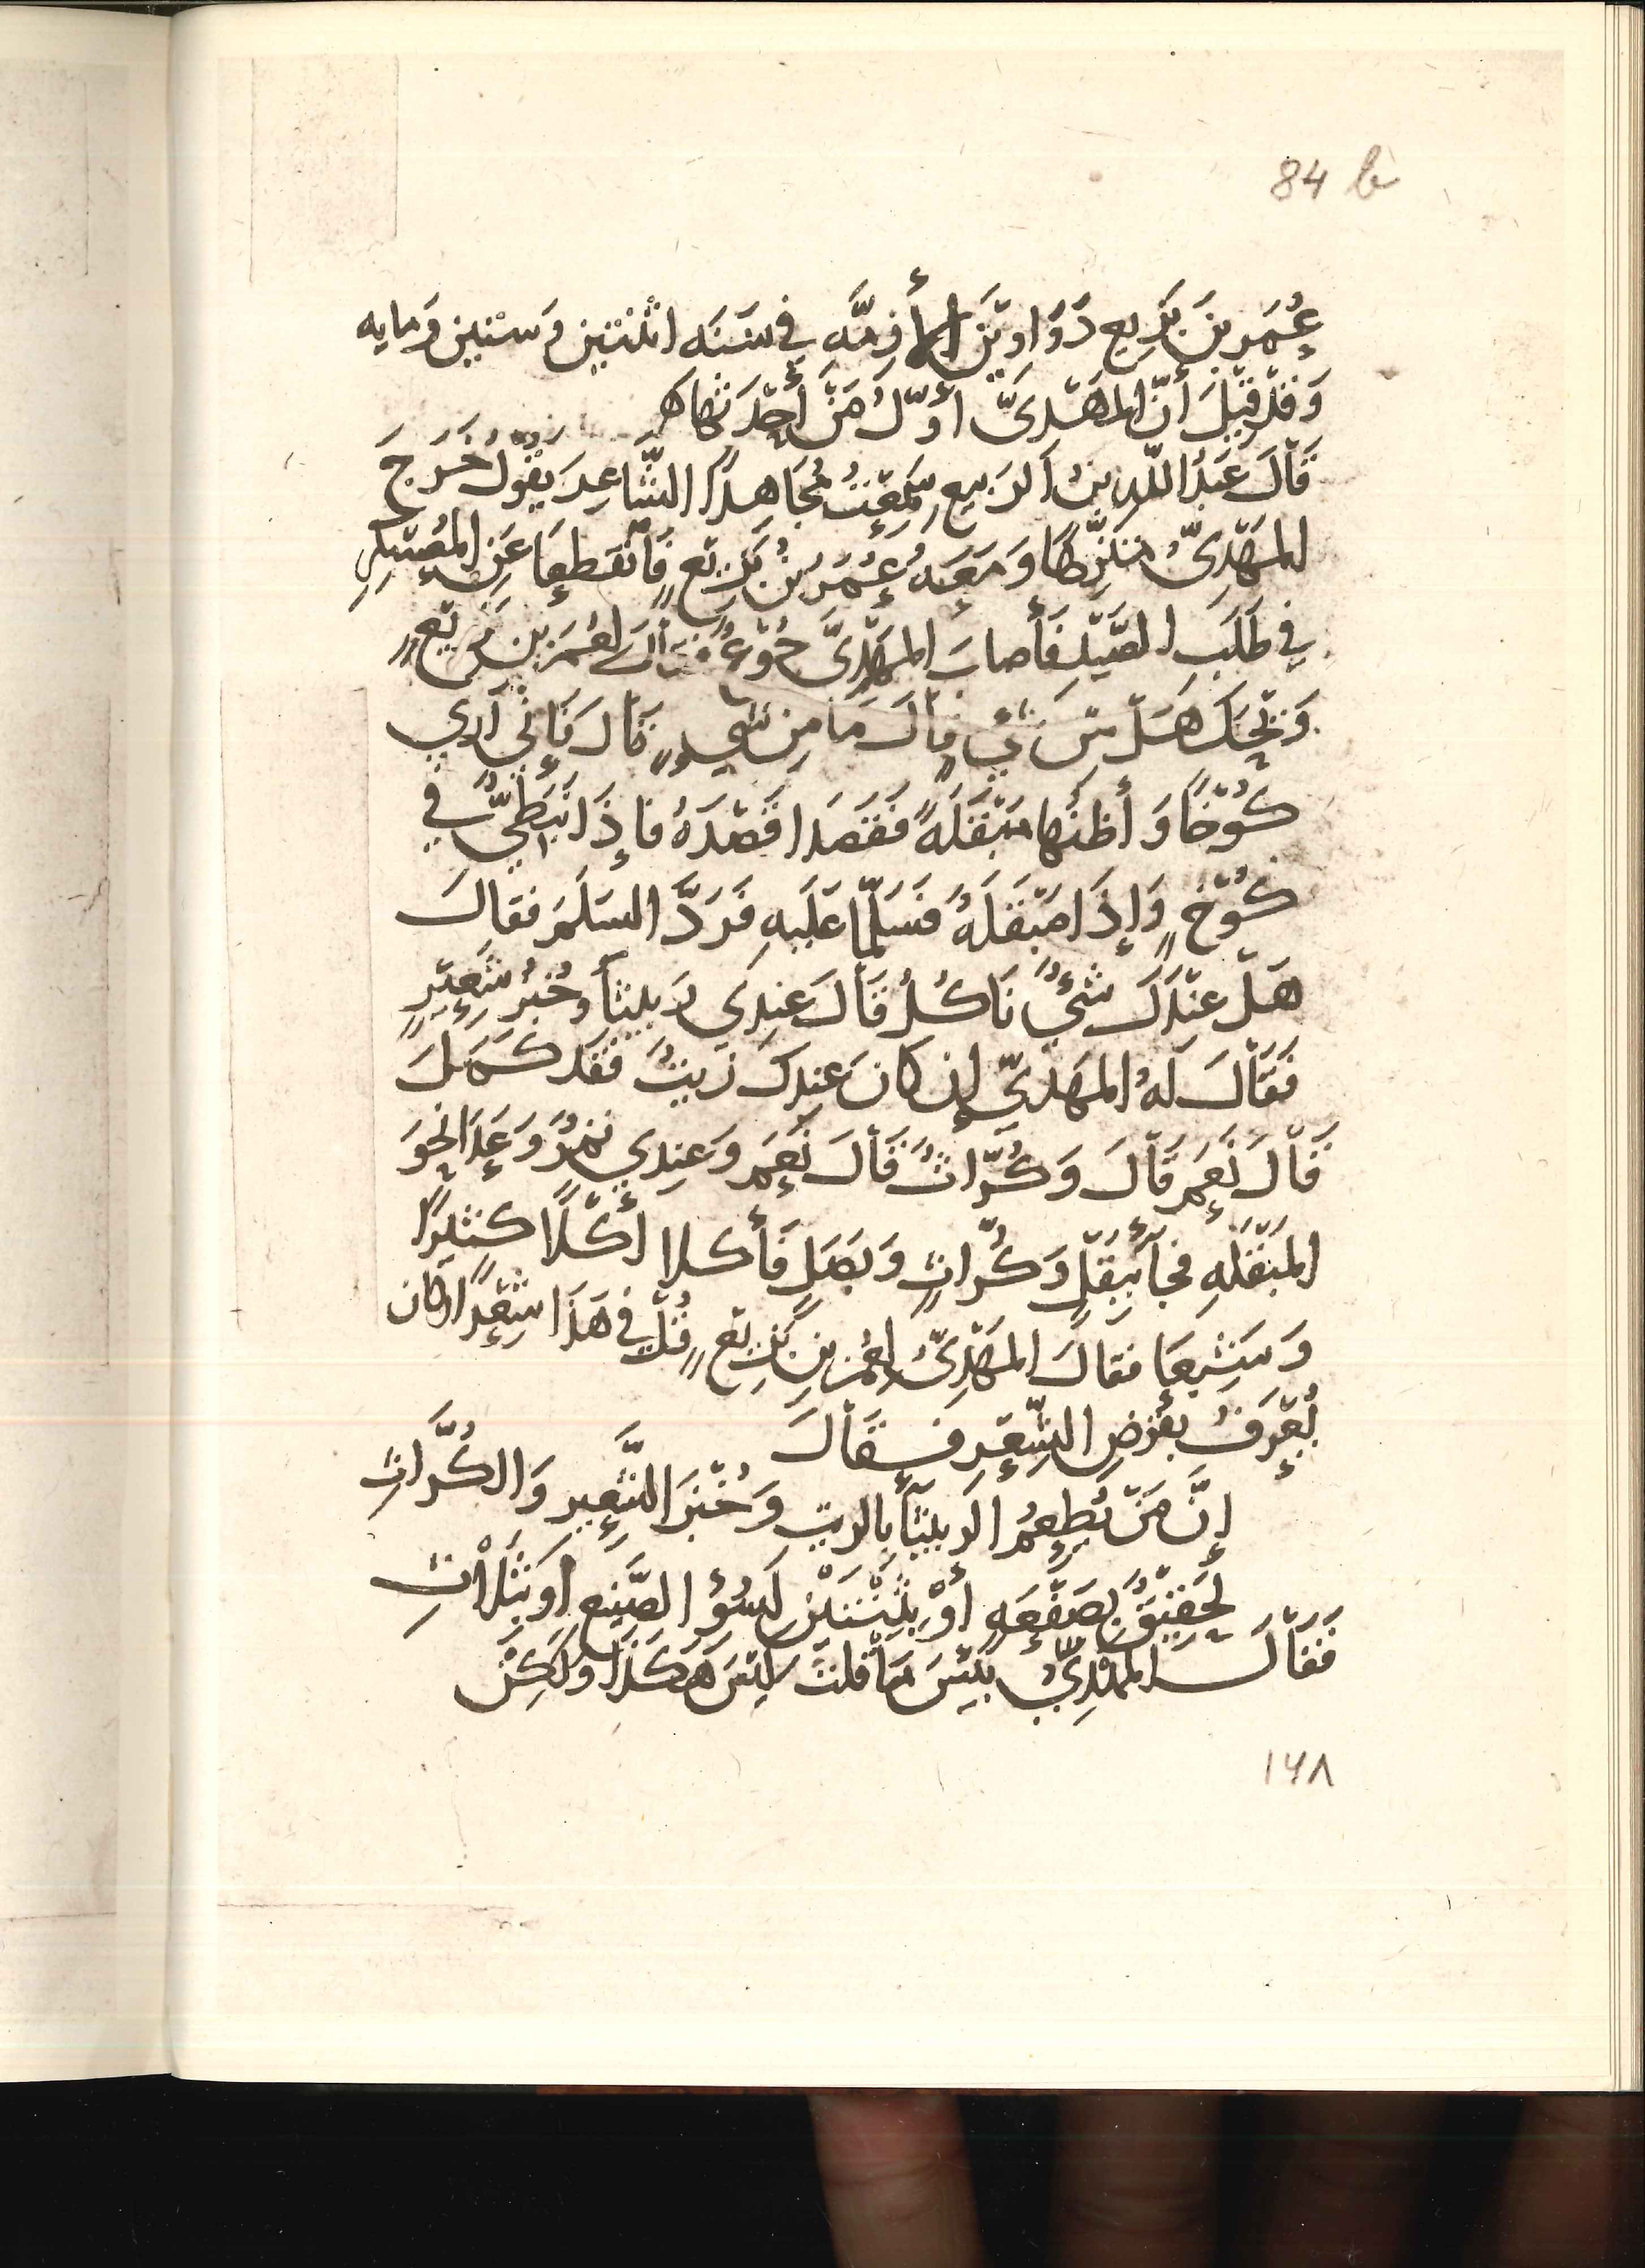 84 b
عُمَر بن بَزِيع دَوَاوِيَن الأَزِمَّهِ فِي سَنَه اثْنَتَيِن وَسِتِين وَمايه
وَقَدْ قِيْلَ أنّ المهْدِىَّ أَوّلُ مَنْ أَحْدَثهاه
قَاْلَ عَبْدُ اللّهِ بنُ الرَبيعِ سَمِعْتُ مُجَاهِدًا الشَّاعِرَ يَقُوْلُ خَرَجَ
المَهْدِىّ مُتَنَزِّهًا وَمَعَهُ عُمَرُ بْنُ بَزِيْعٍ فَاْنقَطعَا عَنِ المُعَسْكرِ
فِي طَلَبِ الصَّيْدِ فَأَصابَ المَهْدِىَّ جُوْعٌ فقالَ لعُمَر بن بَزِيْعٍ
وَيْحَكَ هَلْ مِنْ شَيْءٍ قاْلَ مَا مِن شَيءٍ قَالَ فَإِنِّي أَرَي
كُوْخًا وَأَظنُها مَبْقَلَةً فقَصَدا قَصْدَهُ فإِذَا نَبَطِيٌّ فِي
كُوْخٍ وَإِذَا مَبْقَلَهٌ فسَلَّمَا عَلَيهِ فَرَدَّ السَلَمَ فقالَ
هَلْ عِنْدَكَ شَيْءٌ نَاكُلُ قَاْلَ عِندِي رَبيثآ وخُبزُ شَعِيْرٍ
فَقَاْلَ لَهُ المهَدِيّ إِن كانَ عِندَكَ زَيتٌ فَقَد كَمَلَ
قَاْلَ نَعَم قَاْلَ وَكُرَّاثٌ قَاْلَ نَعَم وَعِندِي تمرٌ وَعَدَا نحْوَ
المَبْقَلَهِ فجآءَ ببَقْلٍ وَكُرَّاثٍ وَبَصَلٍ فَأَكلا أَكْلًا كَثيِرًا
وَشَبِعَا فقالَ المَهْدِىّ لعُمَر بنِ بَزِيْعٍ قُلْ فِي هَذَا شِعْرًا وَكان
يُعْرَفُ بقَرْضِ الشِّعْرِ فَقَاْلَ
إِنَّ مَنْ يُطعِمُ الرَبيثآءَ بِالزيتِ وَخُبْزَ الشَّعِيرِ وَالكُرَّاثِ
لَحَقِيْقٌ بصَفْعَهٍ أَوْ بِثِنْتَيْنِ لِسُوْءِ الصَّنِيعِ أو بِثَلَاْثِ
فَقَاْلَ المَهْدِيُّ بِئْسَ مَا قلتَ لَيْسَ هَكَذَا وَلَكِنْ
١٦٨